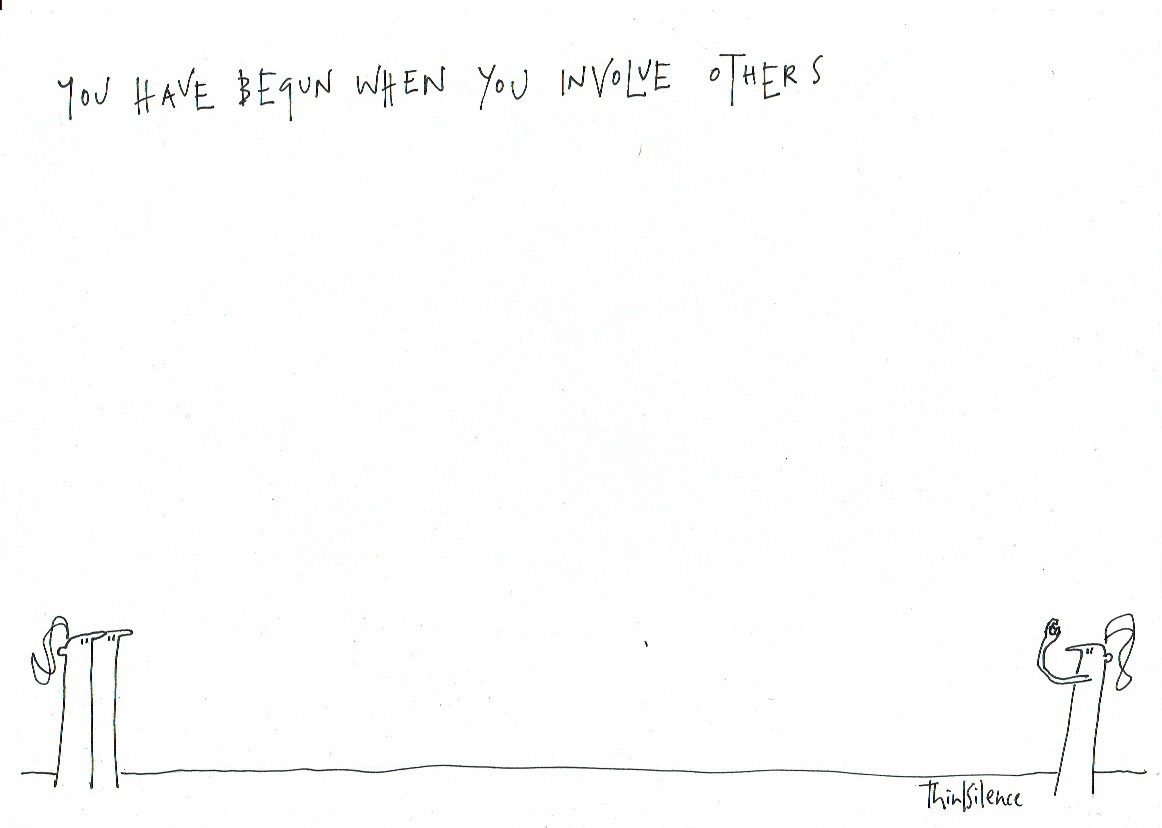 YOU HAVE BEGUN WHEN YOU INVOLVE OTHERS
Thin|Silence